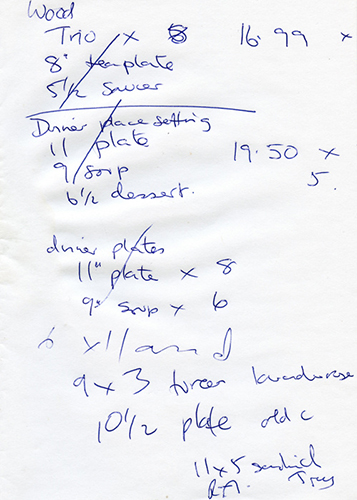 Wood
Trio x 8 16.99 x
8" teaplate
5 1/2 saucer
Dinner place setting
11 plate 19.50 x
9 soup 5
6 1/2 dessert.
dinner plates
11" plate x 8
9" soup x 6
6 x 11 and
9 x 3
10 1/2 plate old c
11 x 5 sandwich
Tray